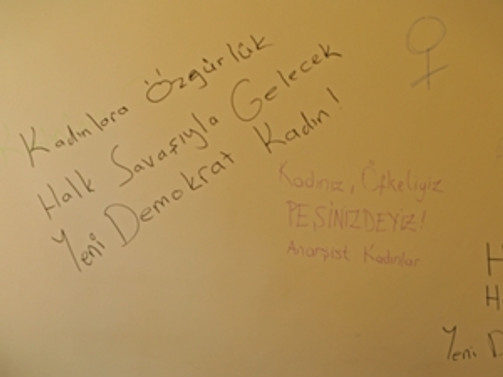 Kadınlara Özgürlük
Halk Savaşıyla Gelecek
Yeni Demokrat Kadın!
Kadınız, Öfkeliyiz
PEŞİNİZDEYİZ!
Anarşist Kadınlar
H
H
Yeni D